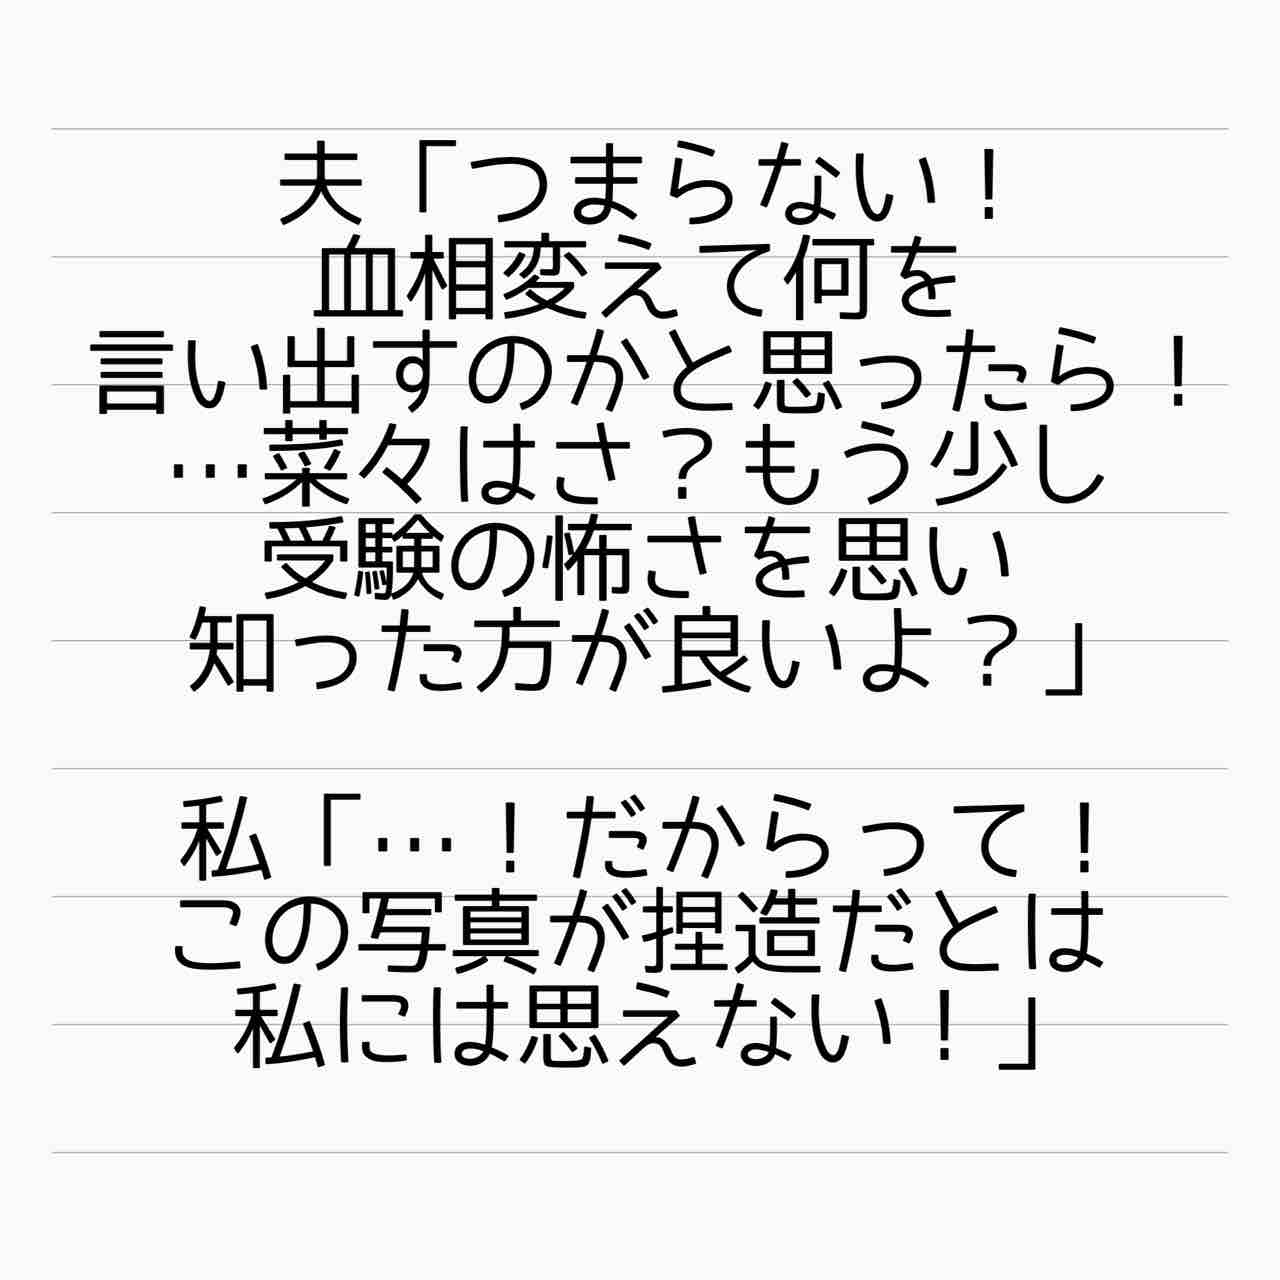 夫「つまらない！
血相変えて何を
言い出すのかと思ったら！
…菜々はさ？もう少し
受験の怖さを思い
知った方が良いよ？」
私「…！だからって！
この写真が捏造だとは
私には思えない！」